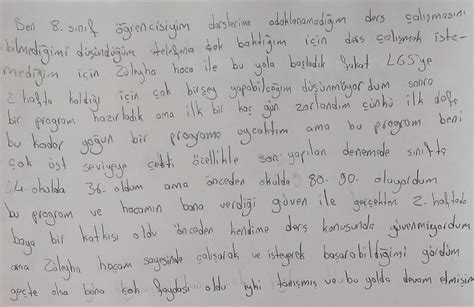 Ben 8. sınıf öğrencisiyim derslerime odaklanamadığım ders çalışmasını
bilmediğimi düşündüğüm telefona çok baktığım için ders çalışmak iste-
mediğim için Züleyha hoca ile bu yola başladık fakat LGS'ye
2 hafta kaldığı için çok birşey yapabilceğim düşünmüyordum sonra
bir program hazırladık ama ilk bir kaç gün zorlandım çünkü ilk defa
bu kadar yoğun bir programa uyacaktım ama bu program beni
çok üst seviyeye çekti özellikle son yapılan denemede sınıfta
4. okulda 36. oldum ama önceden okulda 80-90. oluyordum
bu program ve hocamın bana verdiği güven ile gerçekten 2 haftada
baya bir katkısı oldu önceden kendime ders konusunda güvenmiyordum
ama Züleyha hocam sayesinde çalışarak ve isteyerek başarabildiğimi gördüm
geçte olsa bana çok faydası oldu iyiki tanışmış ve bu yolda devam etmişim